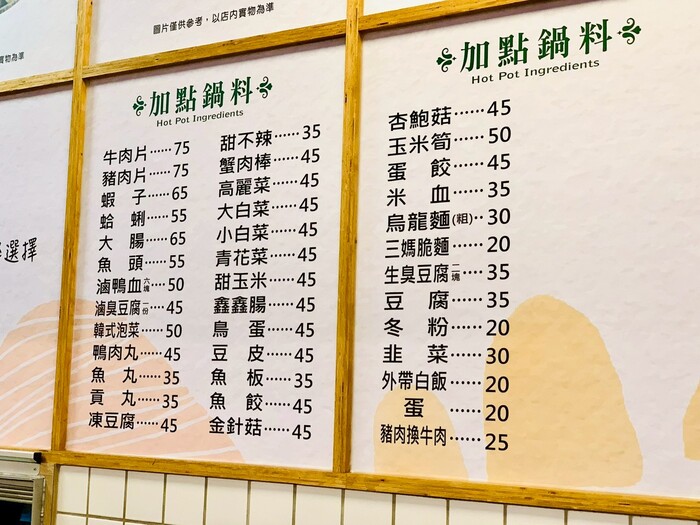 實物為準
圖片僅供參考，以店內實物為準
選擇
加點鍋料
Hot Pot Ingredients
牛肉片……75
豬肉片……75
蝦 子……65
蛤 蜊……55
大 腸……65
魚 頭……55
滷鴨血六塊…50
滷臭豆腐一份…45
韓式泡菜……50
鴨肉丸……45
魚 丸……35
貢 丸……35
凍豆腐……45
甜不辣……35
蟹肉棒……45
高麗菜……45
大白菜……45
小白菜……45
青花菜……45
甜玉米……45
鑫鑫腸……45
鳥 蛋……45
豆 皮……45
魚 板……35
魚 餃……45
金針菇……45
加點鍋料
Hot Pot Ingredients
杏鮑菇……45
玉米筍……50
蛋 餃……45
米 血……35
烏龍麵(粗)‥30
三媽脆麵……20
生臭豆腐二塊…35
豆 腐……35
冬 粉……20
韭 菜……30
外帶白飯……20
蛋 ……20
豬肉換牛肉……25